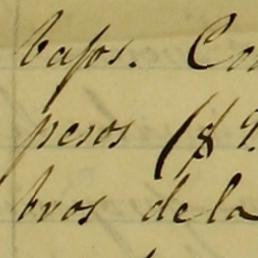 bajos. Con
pesos ($ 9.
bros de la